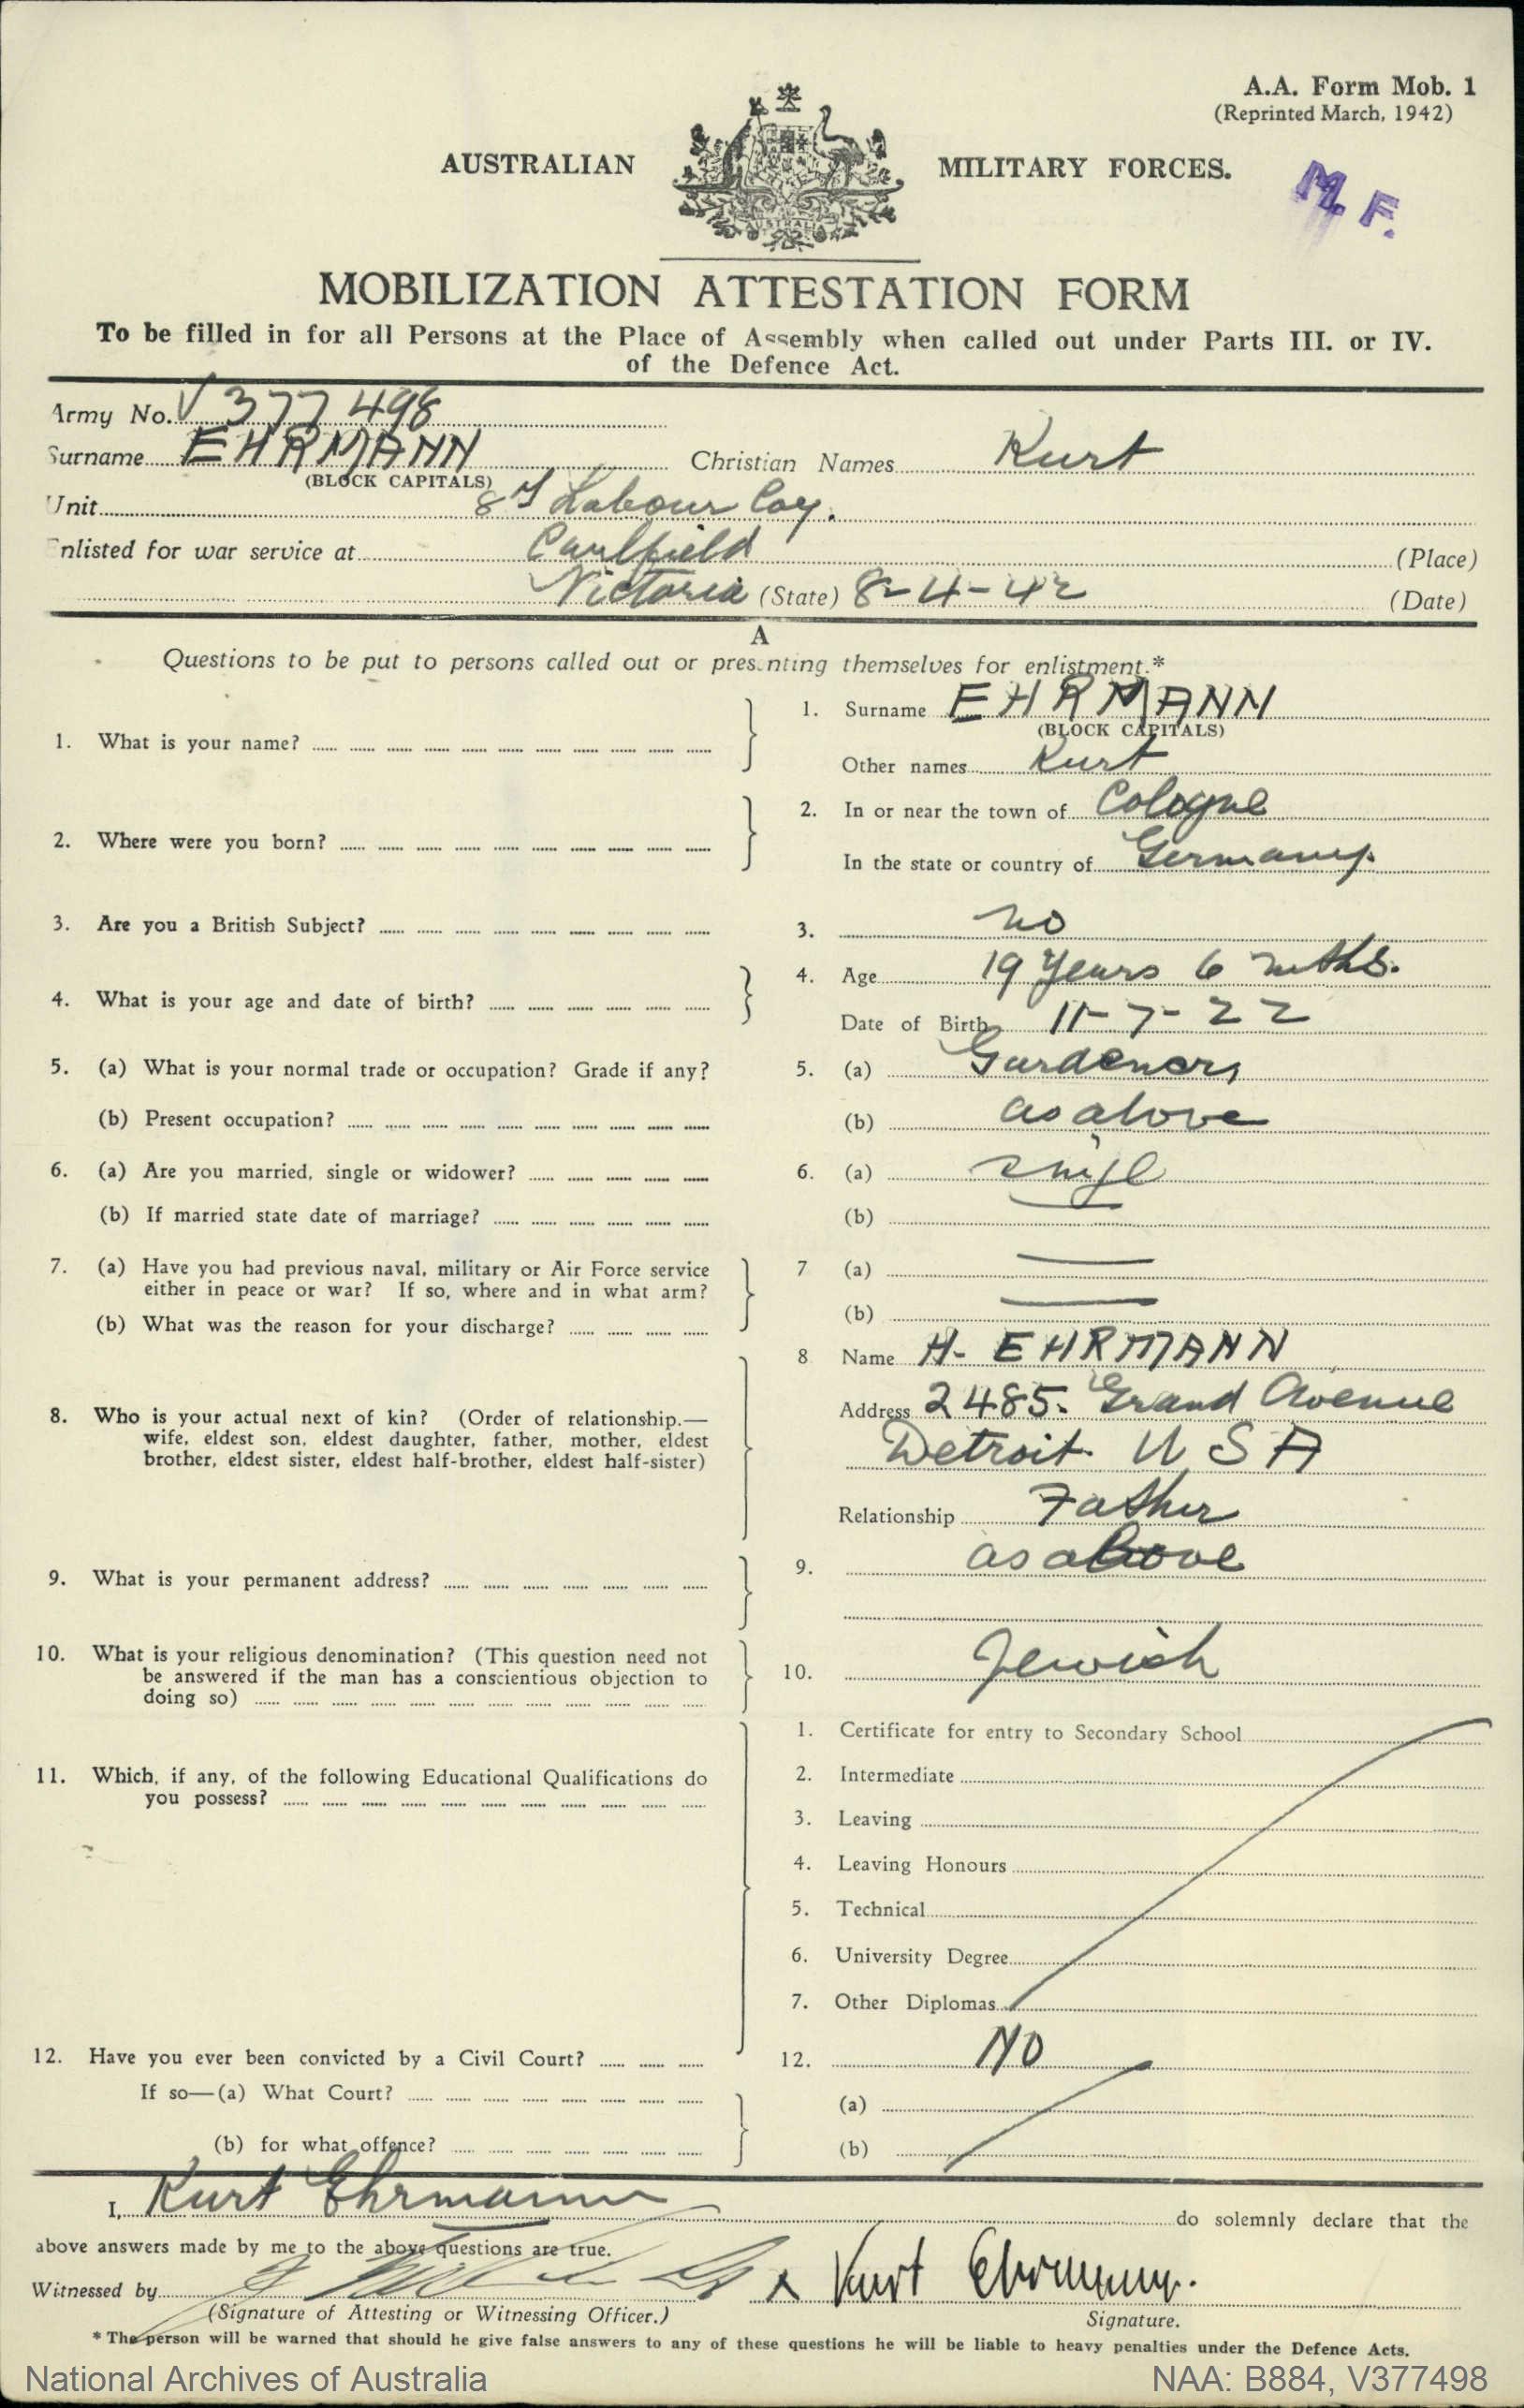 A.A. Form Mob. 1
(Reprinted March, 1942)
AUSTRALIAN MILITARY FORCES.
M. F.
MOBILIZATION ATTESTATION FORM
To be filled in for all Persons at the Place of Assembly when called out under Parts III. or IV.
of the Defence Act.
Army No. V377498
Surname EHRMANN Christian Names Kurt
(BLOCK CAPITALS)
Unit 8 Labour Coy.
Enlisted for war service at Caulfield (Place)
Victoria (State) 8-4-42 (Date)
A
Questions to be put to persons called out or presenting themselves for enlistment.*
1. What is your name? 1. Surname EHRMANN
(BLOCK CAPITALS)
Other names Kurt
2. Where were you born? 2. In or near the town of Cologne
In the state or country of Germany.
3. Are you a British Subject? 3. no
4. What is your age and date of birth? 4. Age 19 years 6 mths.
Date of Birth 11-7-22
5. (a) What is your normal trade or occupation? Grade if any? 5. (a) Gardener
(b) Present occupation? (b) as above
6. (a) Are you married, single or widower? 6. (a) single
(b) If married state date of marriage? (b)
7. (a) Have you had previous naval, military or Air Force service 7 (a) —
either in peace or war? If so, where and in what arm?
(b) What was the reason for your discharge? (b) —
8 Name H. EHRMANN
8. Who is your actual next of kin? (Order of relationship.— Address 2485. Grand Avenue
wife, eldest son, eldest daughter, father, mother, eldest Detroit. USA
brother, eldest sister, eldest half-brother, eldest half-sister)
Relationship Father
9. What is your permanent address? 9. as above
10. What is your religious denomination? (This question need not
be answered if the man has a conscientious objection to 10. Jewish
doing so)
1. Certificate for entry to Secondary School
11. Which, if any, of the following Educational Qualifications do 2. Intermediate
you possess?
3. Leaving
4. Leaving Honours
5. Technical
6. University Degree
7. Other Diplomas
12. Have you ever been convicted by a Civil Court? 12. NO
If so—(a) What Court? (a)
(b) for what offence? (b)
I, Kurt Ehrmann do solemnly declare that the
above answers made by me to the above questions are true.
Witnessed by x Kurt Ehrmann.
(Signature of Attesting or Witnessing Officer.) Signature.
* The person will be warned that should he give false answers to any of these questions he will be liable to heavy penalties under the Defence Acts.
National Archives of Australia NAA: B884, V377498